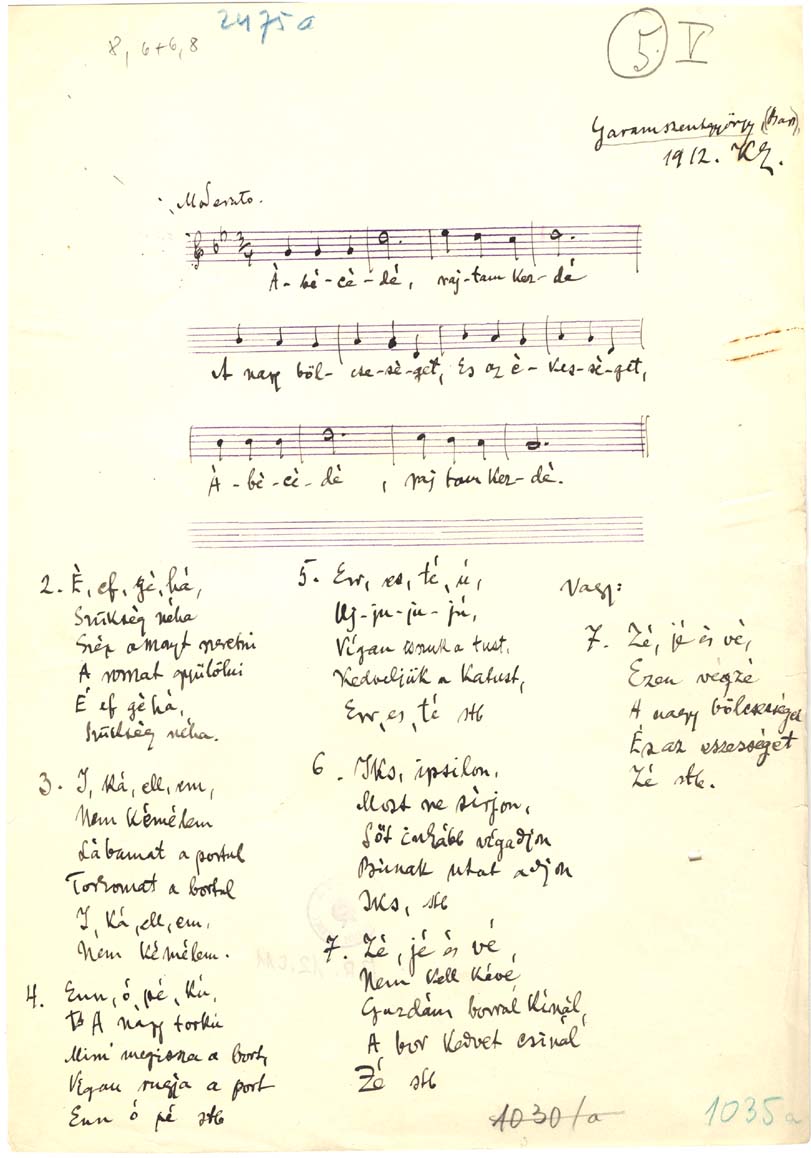 2475a
8, 6+6, 8
5. V
Garamszentgyörgy, (Bars),
1912. KZ.
Moderato.
À-bé-cè-dé, raj-tam kez-dé
A nagy böl-cse-sè-get, És az é-kes-sè-get,
À-bè-cè-dè, raj tam kez-dè.
2. È, ef, gè, há,
Szükség néha
Szép a
A rosszat gyülölni
É ef gè há,
Szükség néha.
3. I, ká, ell, em,
Nem kémélem
Lábamat a portul
Torkomat a bortul
I, ká, ell, em,
Nem kémélem.
4. Enn, ó, pé, kú,
A nagy torku
Mind megissza a bort,
Vigan rugja a port
Enn ó pé stb
5. Err, es, té, ú,
Uj-ju-ju-jú,
Vigan a tust,
Kedveljük a Katust,
Err, es, té stb
6. Iks, ipsilon,
Most ne sirjon,
Sőt inkább vigadjon
Búnak utat adjon
Iks, stb
7. Zé, jé és vé,
Nem kell kávé,
Gazdám borral kinál,
A bor kedvet csinál
Zé stb
Vagy:
7. Zé, jé és vé,
Ezen végzé
A nagy bölcsességet
És az eszességet
Zé stb.
1030/a
1035a